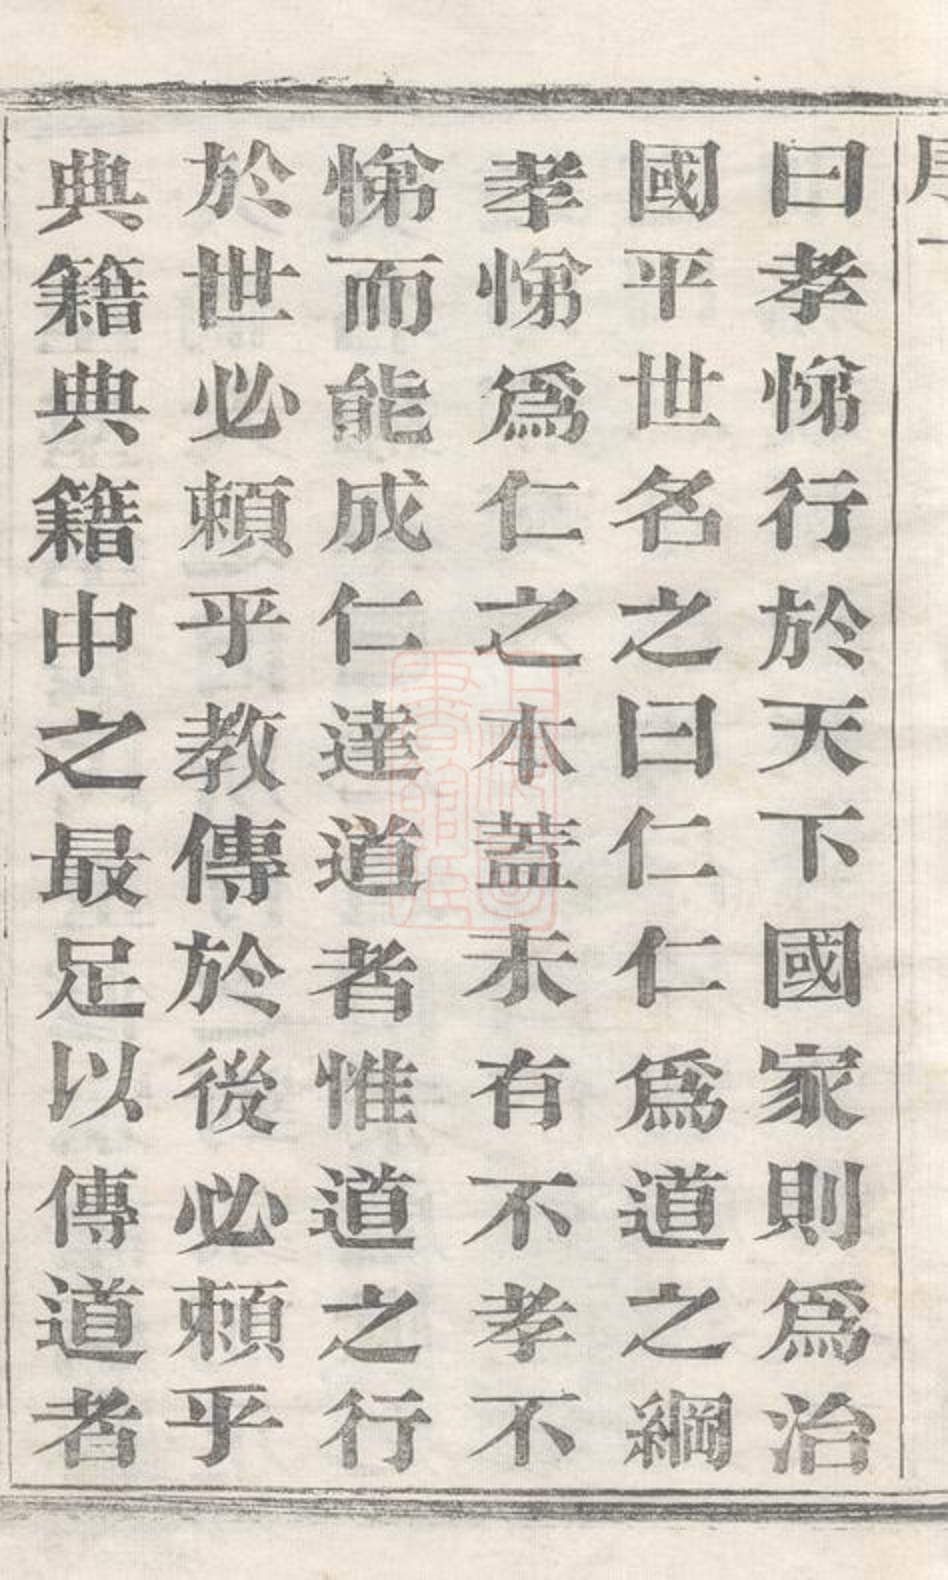 曰孝悌行於天下國家則爲治
國平世名之曰仁仁爲道之綱
孝悌爲仁之本蓋未有不孝不
悌而能成仁達道者惟道之行
於世必頼乎教傳於後必頼乎
典籍典籍中之最足以傳道者